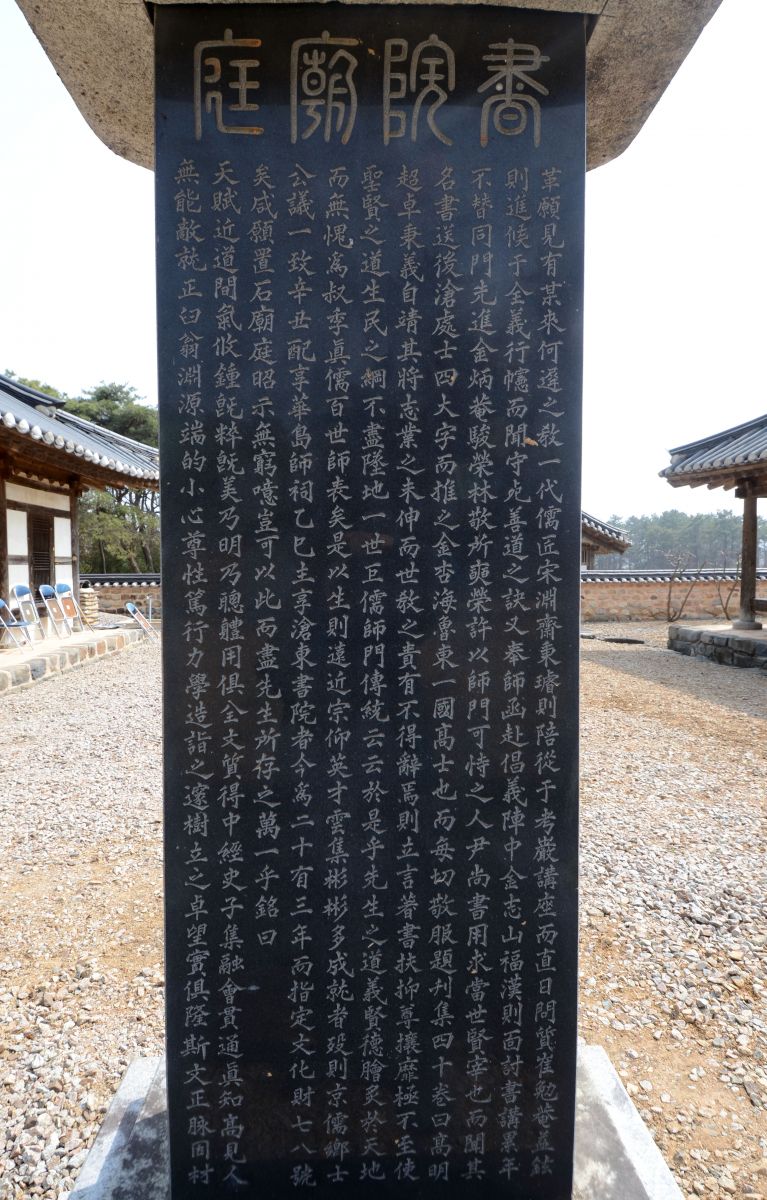 書院廟庭
革願見有某來何遲之敎一代儒匠宋淵齋東璿則陪從于考巖講座而直日問質崔勉菴益鉉
則進候于全義行幰而聞守死善道之訣又奉師函赴倡義陣中金志山福漢則面討書講累年
不替同門先進金炳菴駿榮林敬所奭榮許以師門可恃之人尹尚書用求當世賢宰也而聞其
名書送後滄處士四大字而推之金杏海魯東一國高士也而每切敬服題刋集四十巻曰高明
超卓秉義自靖其將志業之未伸而世敎之責有不得辭焉則立言著書扶抑尊攘靡極不至使
聖賢之道生民之綱不盡墜地一世巨儒師門傳統云云於是乎先生之道義賢德膾炙於天地
而無愧爲叔季眞儒百世師表矣是以生則遠近宗仰英才雲集彬彬多成就者歿則京儒鄉士
公議一致辛丑配享華島師祠乙巳主享滄東書院者今爲二十有三年而指定文化財七八號
矣咸願置石廟庭昭示無窮噫豈可以此而盡先生所存之萬一乎銘曰
天賦近道間氣攸鍾旣粹旣美乃明乃聰體用俱全文質得中經史子集融會貫通眞知高見人
無能敵就正臼翁淵源端的小心尊性篤行力學造詣之邃樹立之卓望實俱隆斯文正脉固村